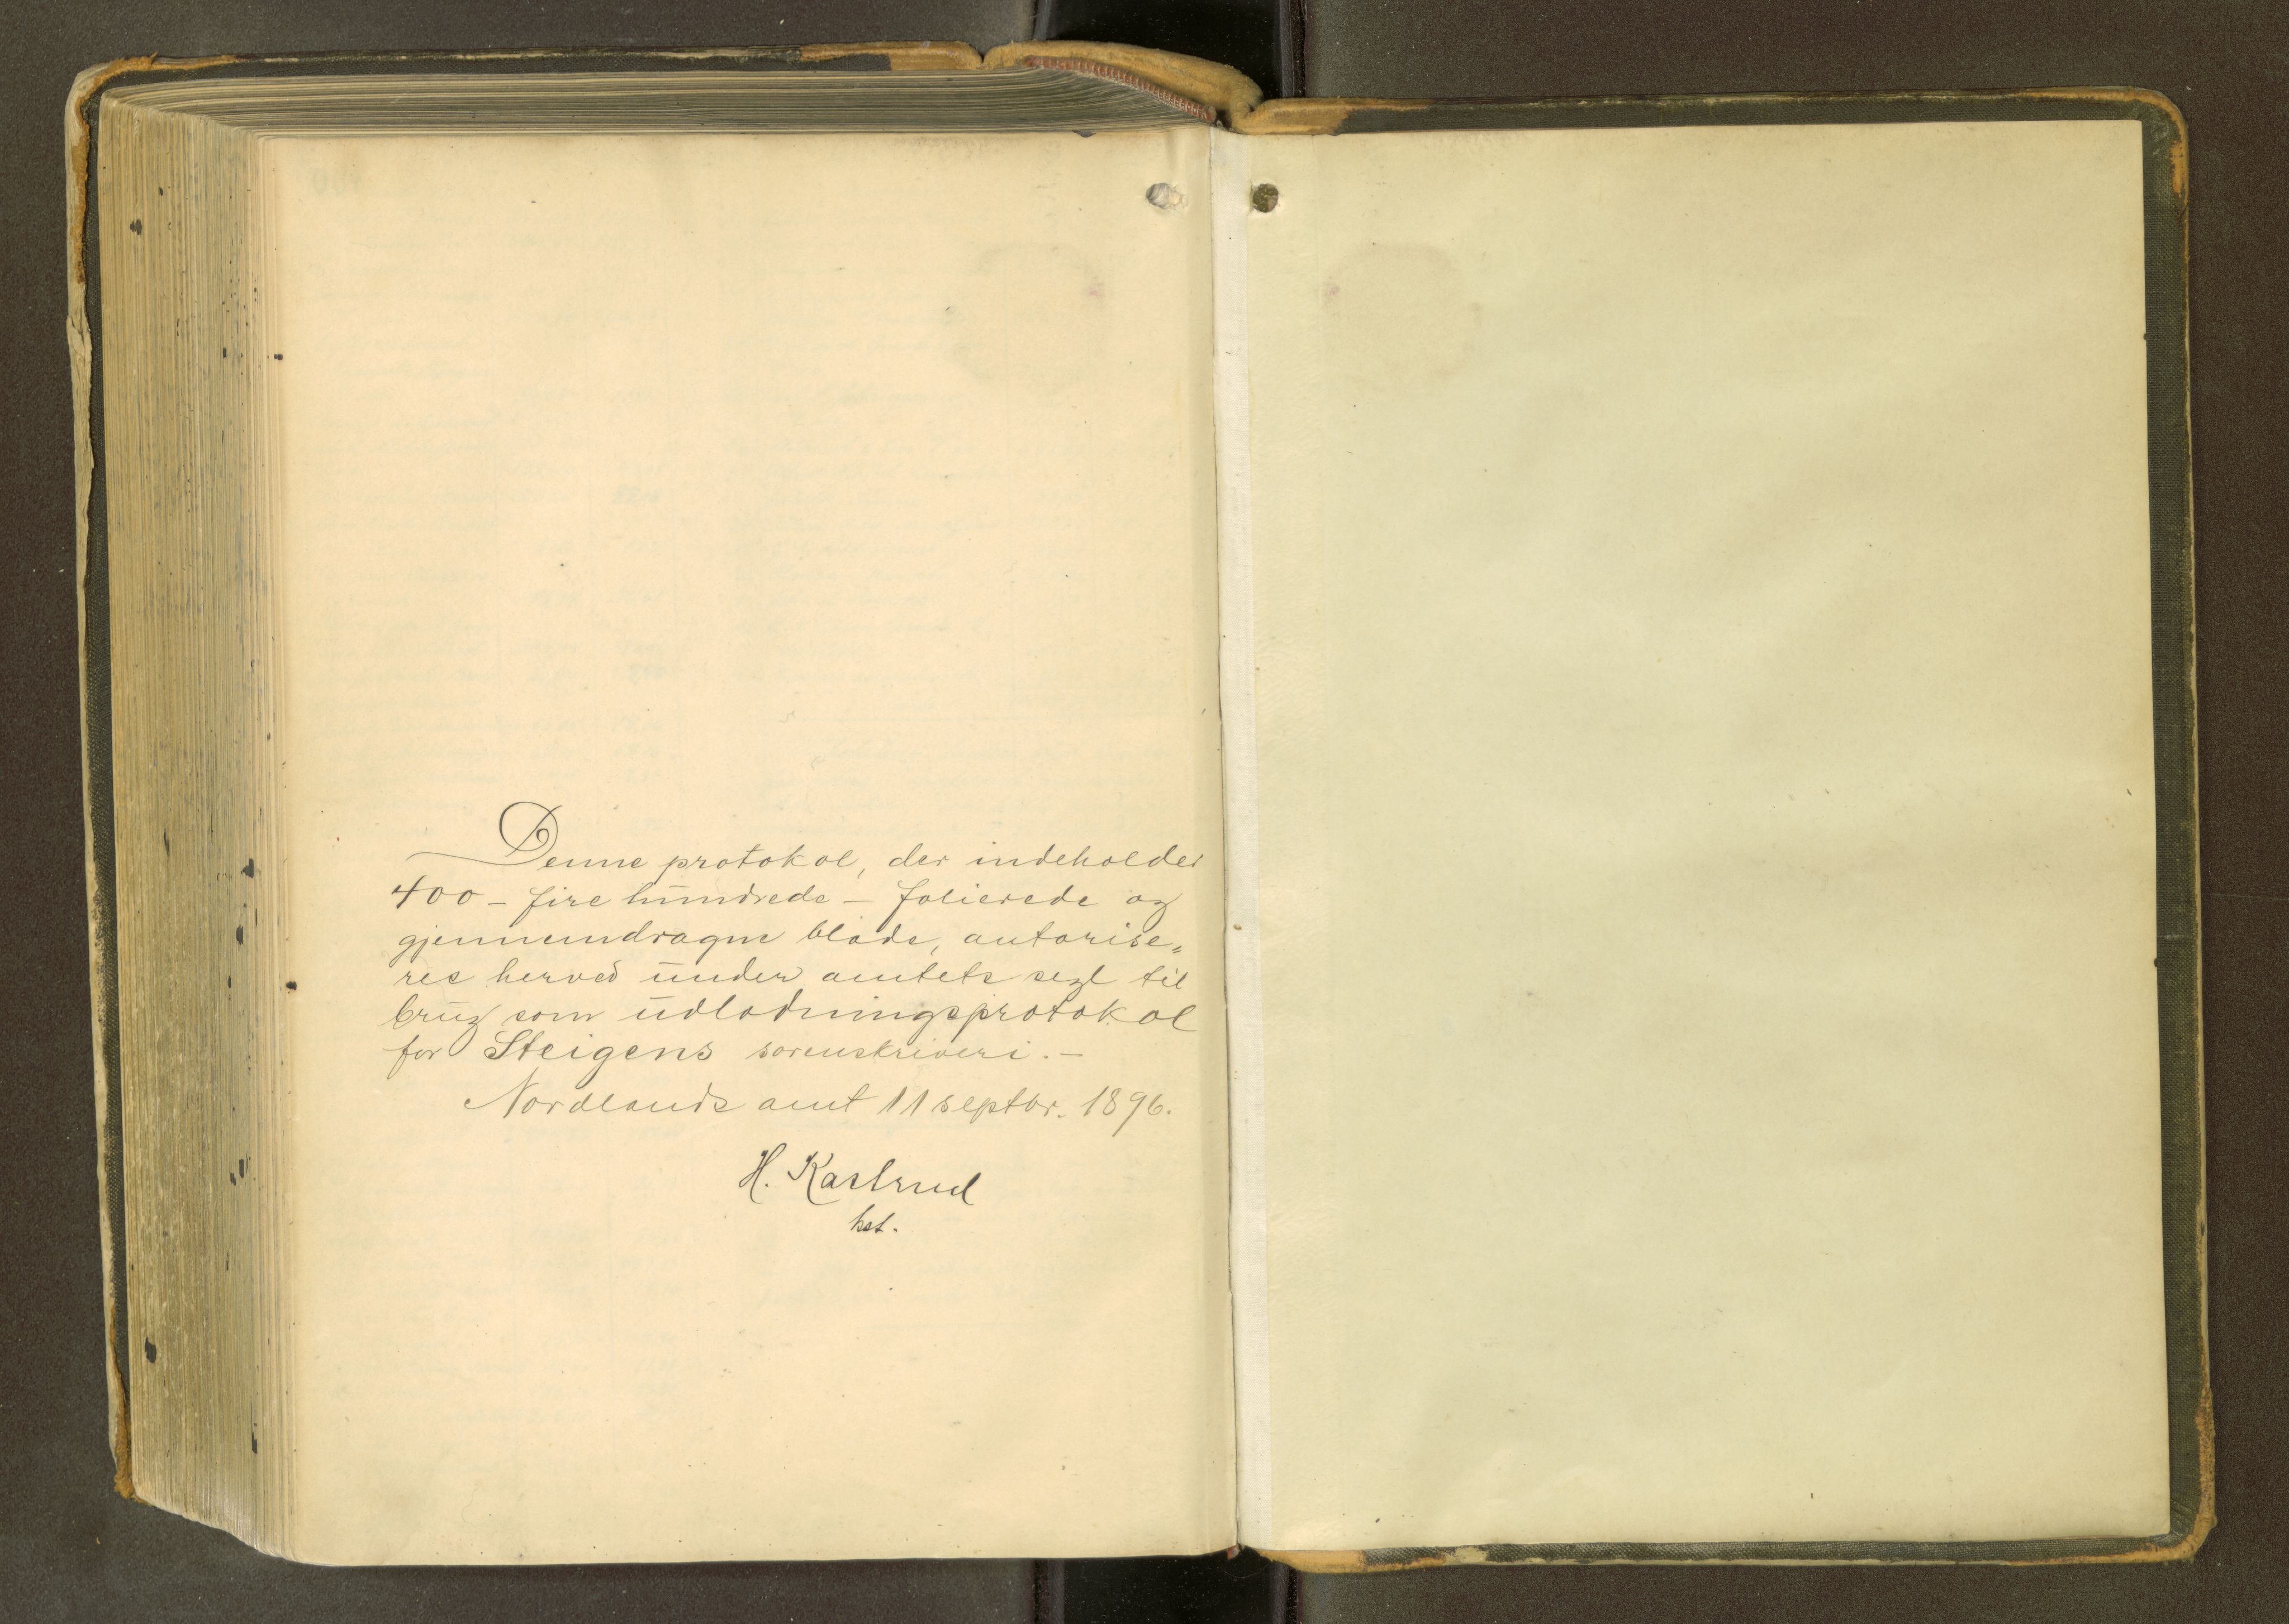 Denne protokol, der indeholder
400 - fire hundrede - folierede og
gjennemdragne blade, autorise=
res herved under amtets segl til
brug som udlodningsprotokol
for Steigens sorenskriveri. -
Nordlands amt 11 septbr. 1896.
H. Kastrud
kst.